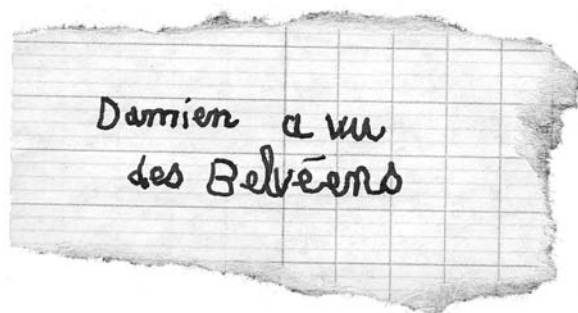 Damien a vu
des Belvéens